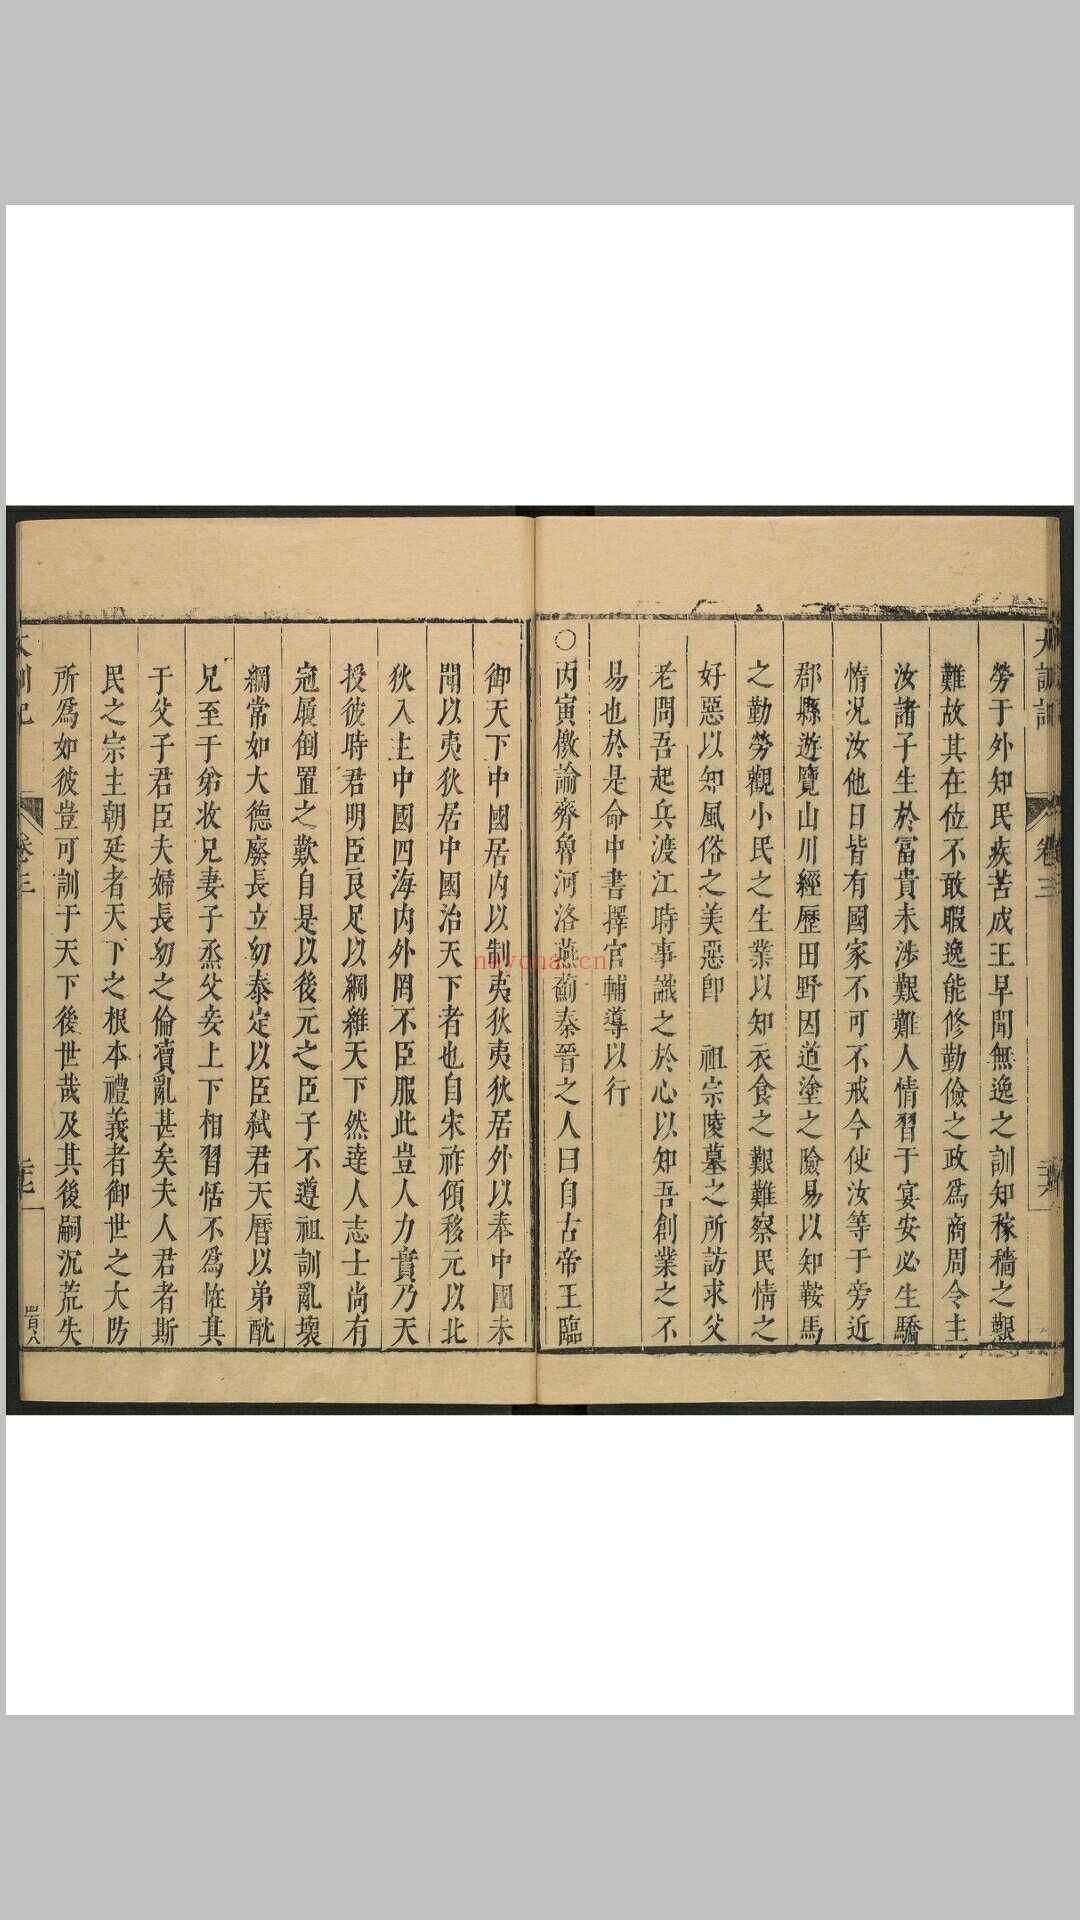 勞于外知民疾苦成王早聞無逸之訓知稼穡之艱
難故其在位不敢暇逸能修勤儉之政爲商周令主
汝諸子生於富貴未涉艱難人情習于宴安必生驕
惰况汝他日皆有國家不可不戒今使汝等于旁近
郡縣遊覽山川經歷田野因道塗之險易以知鞍馬
之勤勞觀小民之生業以知衣食之艱難察民情之
好惡以知風俗之美惡卽 祖宗陵墓之所訪求父
老問吾起兵渡江時事識之於心以知吾創業之不
易也於是命中書擇官輔導以行
○丙寅檄諭齊魯河洛燕薊秦晉之人曰自古帝王臨
御天下中國居内以制夷狄夷狄居外以奉中國未
聞以夷狄居中國治天下者也自宋祚傾移元以北
狄入主中國四海内外罔不臣服此豈人力實乃天
授彼時君明臣良足以綱維天下然達人志士尚有
冠履倒置之歎自是以後元之臣子不遵祖訓亂壞
綱常如大德廢長立幼泰定以臣弑君天曆以弟酖
兄至于弟收兄妻子烝父妾上下相習恬不爲恠其
于父子君臣夫婦長幼之倫瀆亂甚矣夫人君者斯
民之宗主朝廷者天下之根本禮義者御世之大防
所爲如彼豈可訓于天下後世哉及其後嗣沉荒失
卷三
nayona.cn